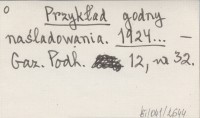 o
Przykład godny
naśladowania. 1924... —
Gaz. Podh. 12, nr 32.